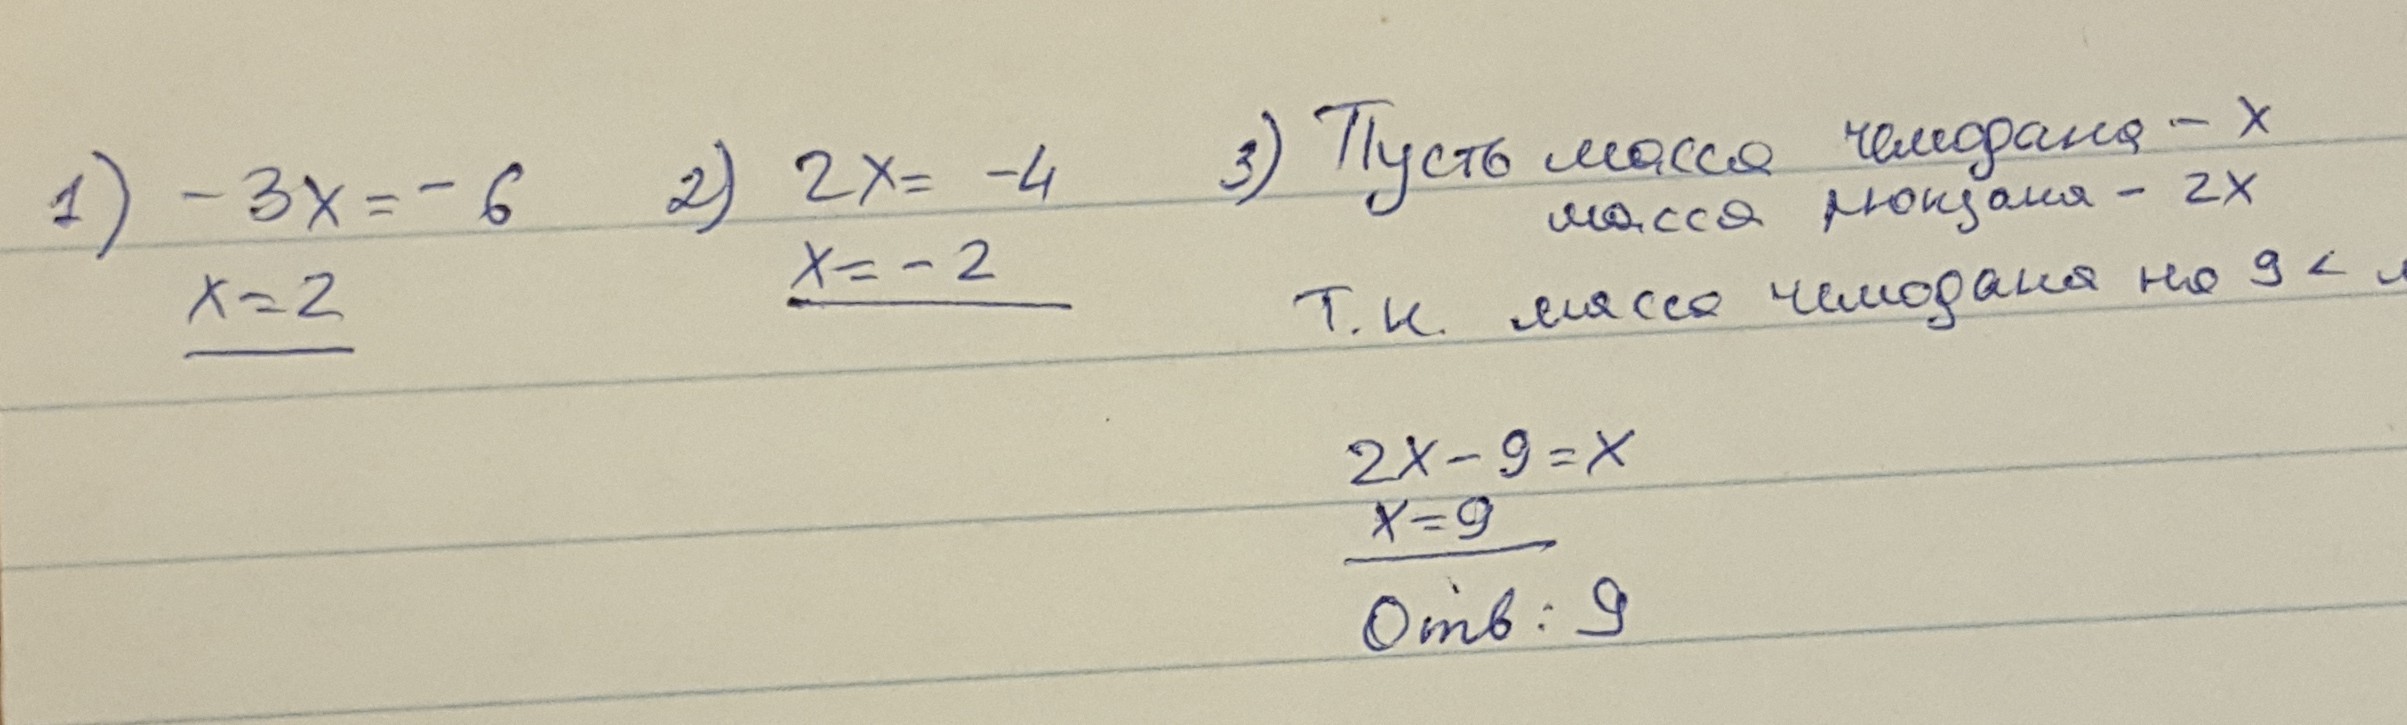 1) -3x=-6
x=2
2) 2x= -4
x=-2
3) Пусть масса чемодана - x
масса рюкзака - 2x
Т.к. масса чемодана на 9 <
2x-9=x
x=9
Отв: 9